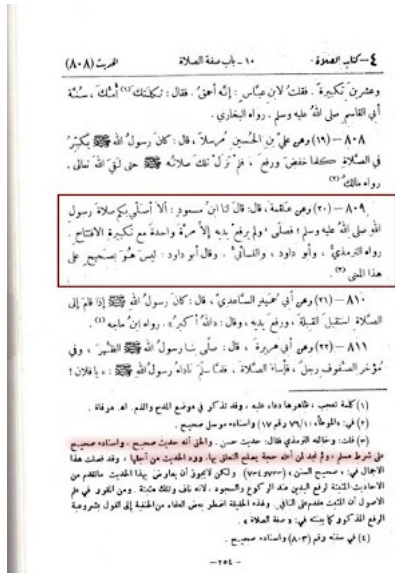 ٤ – كتاب الصلاة ١٠ – باب صفة الصلاة الحديث (٨٠٨)
وعشرين تكبيرة. فقلتُ لابن عبّاس: إنَّه أحمقُ. فقال: ثكلتكَ (١) أمُّكَ، سُنَّة
أبي القاسم صلى اللهُ عليه وسلم. رواه البخاري.
٨٠٨ – (١٩) وعن علي بن الحُسين مُرسلاً، قال: كان رسولُ الله ﷺ يُكبِّرُ
في الصَّلاة كلما خفضَ ورفعَ، فلمْ تزلْ تلكَ صلاته ﷺ حتى لقيَ اللهَ تعالى.
رواه مالكٌ (٢)
٨٠٩ – (٢٠) وعن علقمة، قال: قال لنا ابنُ مسعودٍ: ألا أصلِّي بكم صلاةَ رسولِ
اللهِ صلى اللهُ عليه وسلم؟ فصلَّى، ولم يرفعْ يديه إلاَّ مرَّةً واحدةً مع تكبيرة الافتتاح.
رواه الترمذيُّ، وأبو داود، والنسائيُّ. وقال أبو داود: ليسَ هوَ بصحيحٍ على
هذا المعنى (٣).
٨١٠ – (٢١) وعن أبي حُميدٍ السَّاعديِّ، قال: كان رسولُ الله ﷺ إذا قامَ إلى
الصَّلاة استقبلَ القبلةَ، ورفعَ يديه، وقال: «اللهُ أكبرُ». رواه ابنُ ماجه (٤).
٨١١ – (٢٢) وعن أبي هريرةَ، قال: صلَّى بنا رسولُ الله ﷺ الظُّهرَ، وفي
مُؤخرِ الصُّفوفِ رجلٌ، فأساءَ الصَّلاةَ، فلمَّا سلَّمَ ناداهُ رسولُ اللهِ ﷺ: «يا فلانُ!
(١) كلمة تعجب، ظاهرها دعاء عليه، وقد تذكر في موضع المدح والذم. اه. مرقاة.
(٢) في: «الموطأ» (١/٧٦ رقم ١٧) واسناده مرسل صحيح.
(٣) قلت: وخالفه الترمذي فقال: حديث حسن. والحق أنه حديث صحيح، واسناده صحيح
على شرط مسلم، ولم نجد لمن أعله حجة يصلح التعلق بها، ورد الحديث من أجلها، وقد فصلت هذا
الاجمال في: «صحيح السنن» ولكن لا يجوز أن يعارض بهذا الحديث ماتقدم من
الاحاديث المثبتة لرفع اليدين عند الركوع والسجود، لانه ناف وتلك مثبتة. ومن المقرر في علم
الاصول أن المثبت مقدم على النافي. ولهذه الحقيقة اضطر بعض العلماء من الحنفية إلى القول بشرعية
الرفع المذكور كما بينته في: «صفة الصلاة».
(٤) في سننه رقم (٨٠٣) واسناده صحيح.
– ٢٥٤ –